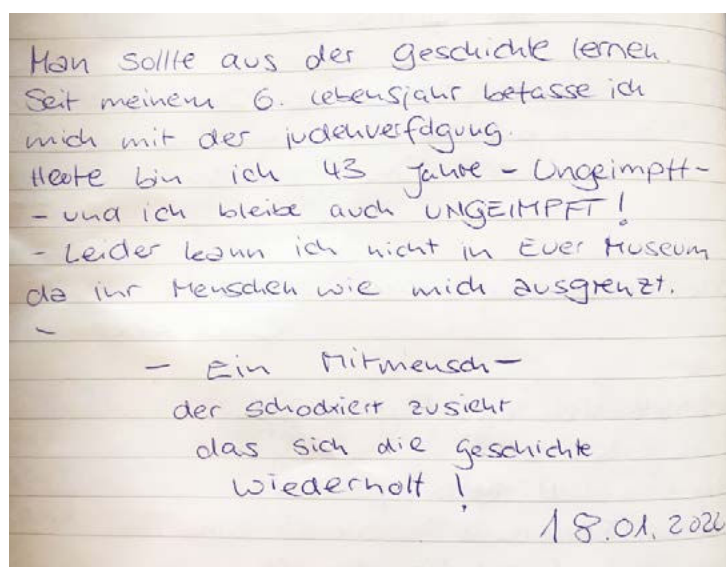 Man sollte aus der Geschichte lernen.
Seit meinem 6. Lebensjahr befasse ich
mich mit der judenverfolgung.
Heute bin ich 43 Jahre – Ungeimpft –
– und ich bleibe auch UNGEIMPFT!
– Leider kann ich nicht in Euer Museum
da ihr Menschen wie mich ausgrenzt.
–
– Ein Mitmensch –
der schockiert zusieht
das sich die Geschichte
wiederholt!
18.01.